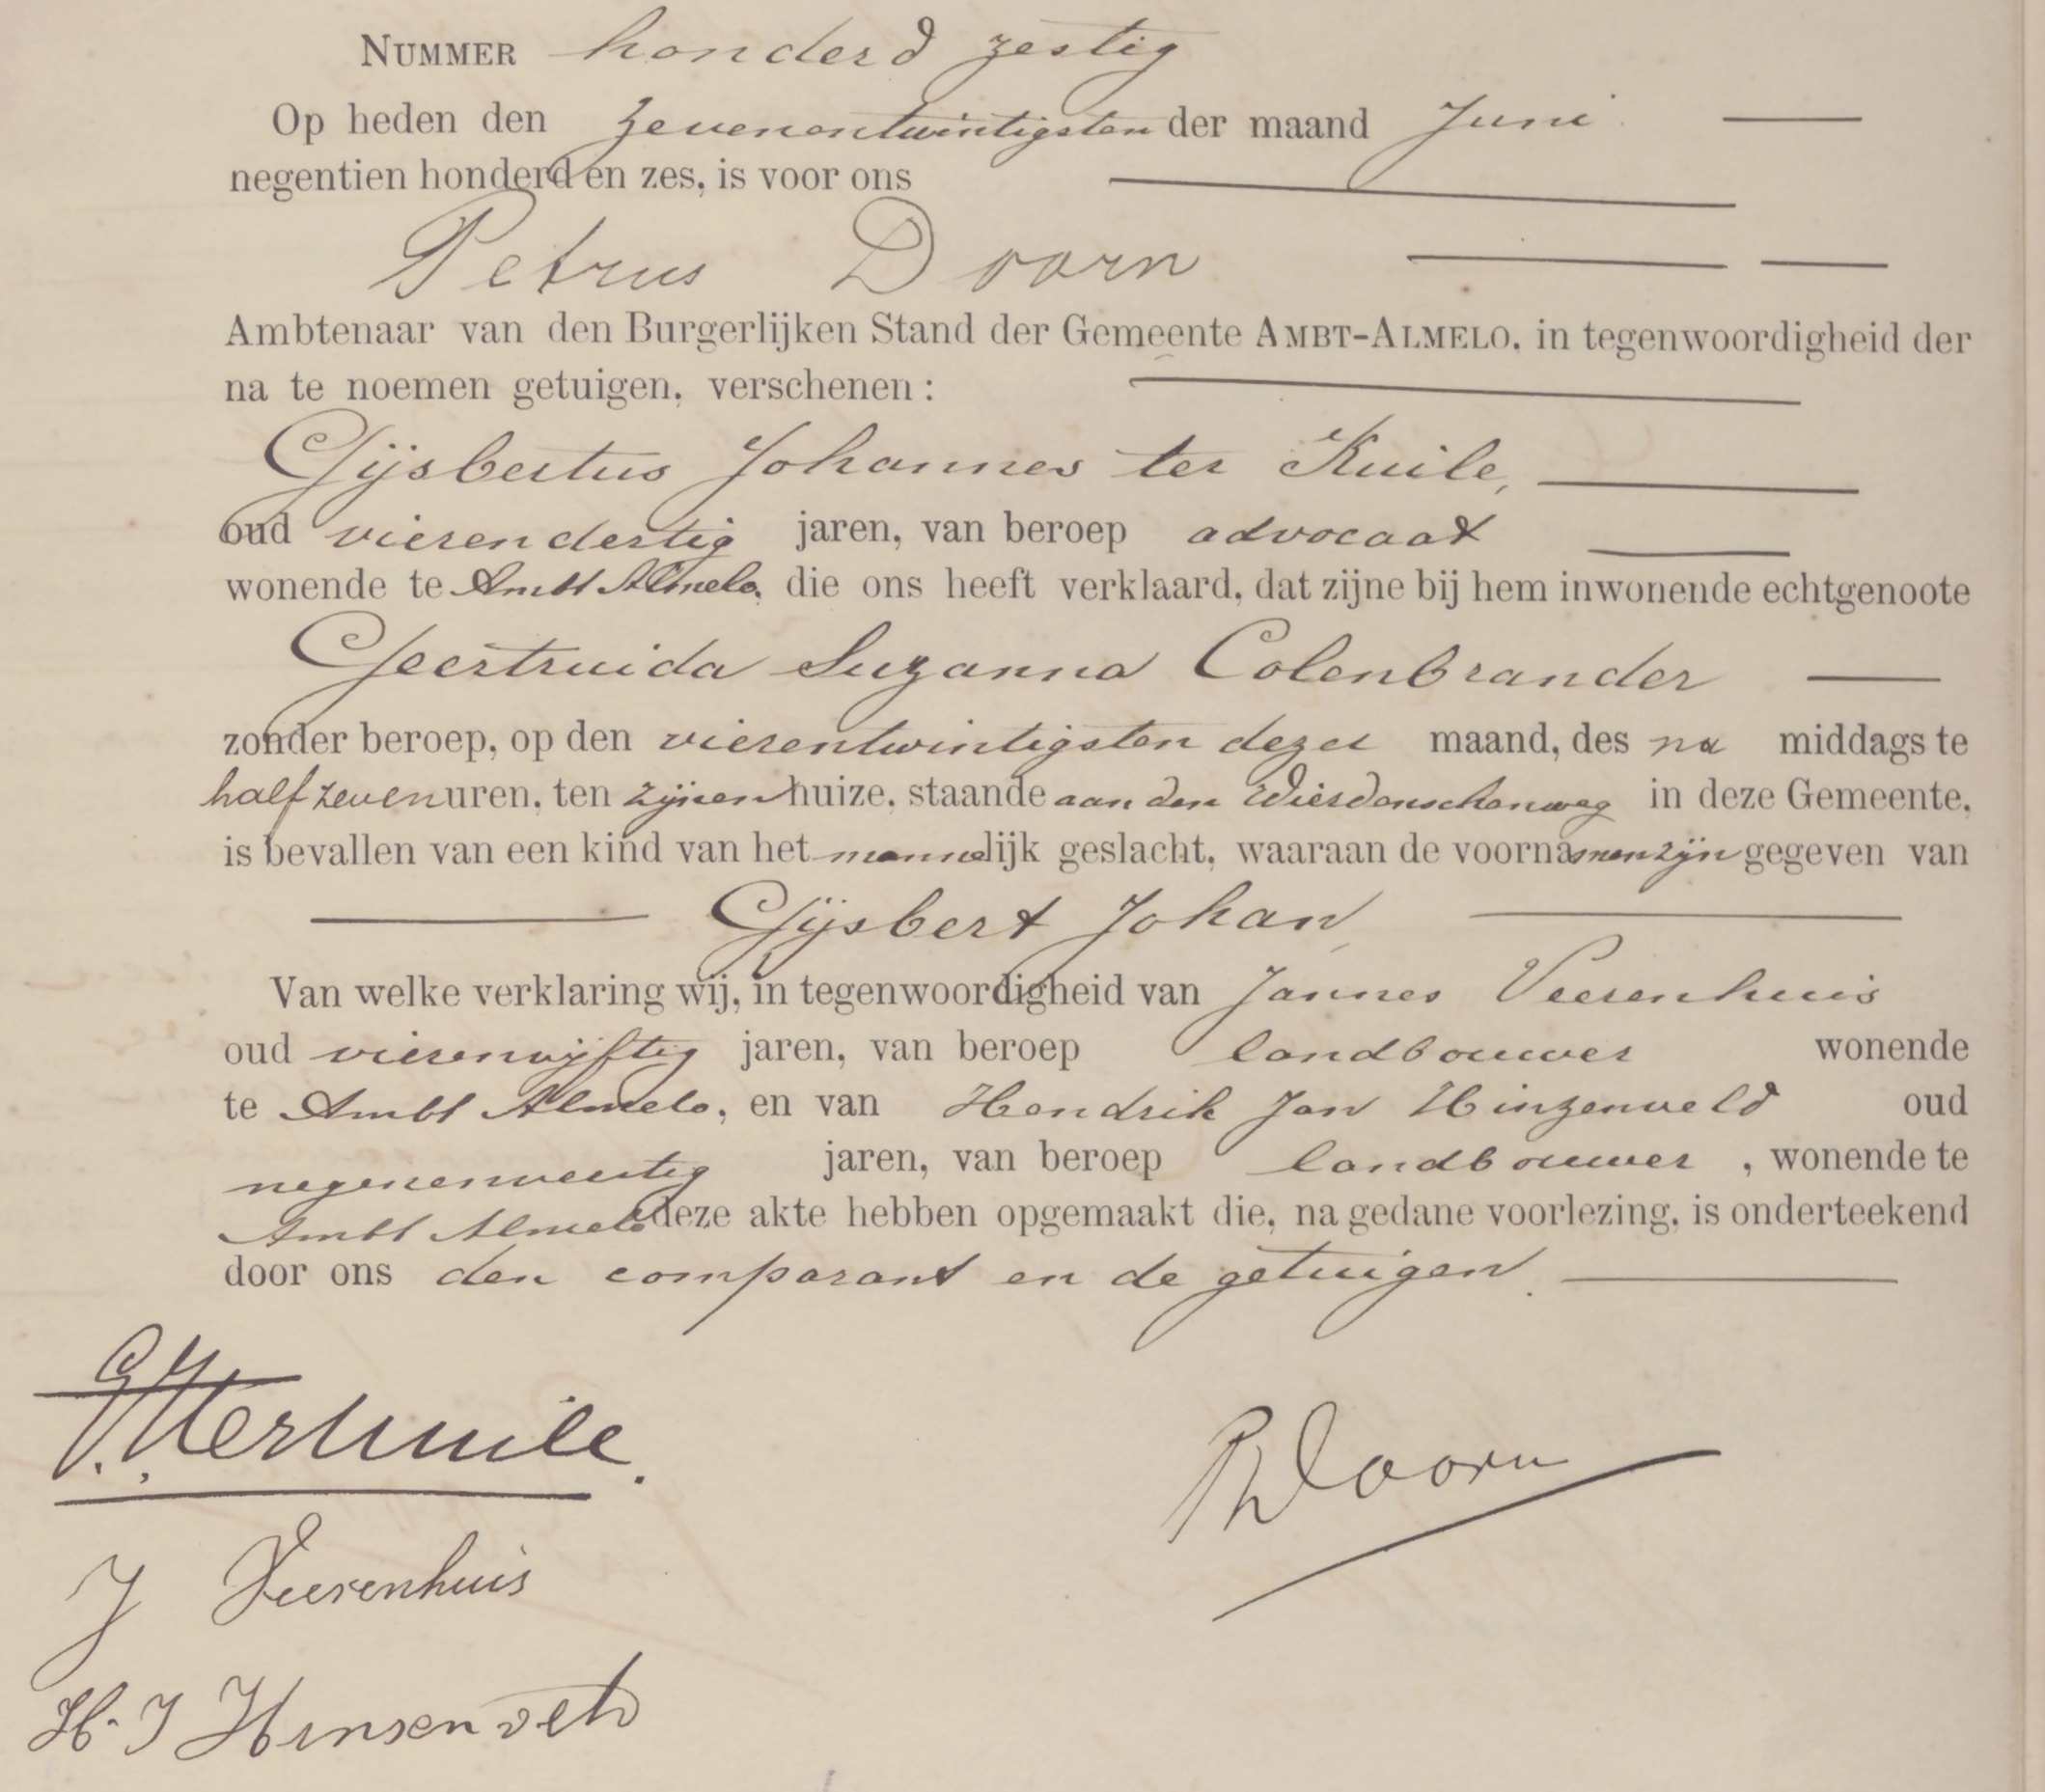 NUMMER honderd zestig
Op heden den zevenentwintigsten der maand Juni
negentien honderd en zes, is voor ons
Petrus Doorn
Ambtenaar van den Burgerlijken Stand der Gemeente AMBT-ALMELO, in tegenwoordigheid der
na te noemen getuigen, verschenen :
Gijsbertus Johannes ter Kuile,
oud vierendertig jaren, van beroep advocaat
wonende te Ambt Almelo, die ons heeft verklaard, dat zijne bij hem inwonende echtgenoote
Geertruida Suzanna Colenbrander
zonder beroep, op den vierentwintigsten dezer maand, des na middags te
half zeven uren, ten zijnen huize, staande aan den Wierdenschenweg in deze Gemeente,
is bevallen van een kind van het mannelijk geslacht, waaraan de voornamen zijn gegeven van
Gijsbert Johan,
Van welke verklaring wij, in tegenwoordigheid van Jannes Veerenhuis
oud vierenvijftig jaren, van beroep landbouwer wonende
te Ambt Almelo, en van Hendrik Jan Hinzenveld oud
negenenveertig jaren, van beroep landbouwer , wonende te
Ambt Almelo deze akte hebben opgemaakt die, na gedane voorlezing, is onderteekend
door ons den comparant en de getuigen.
G.J. ter Kuile.
PDoorn
J Veerenhuis
H. J Hinsenveld